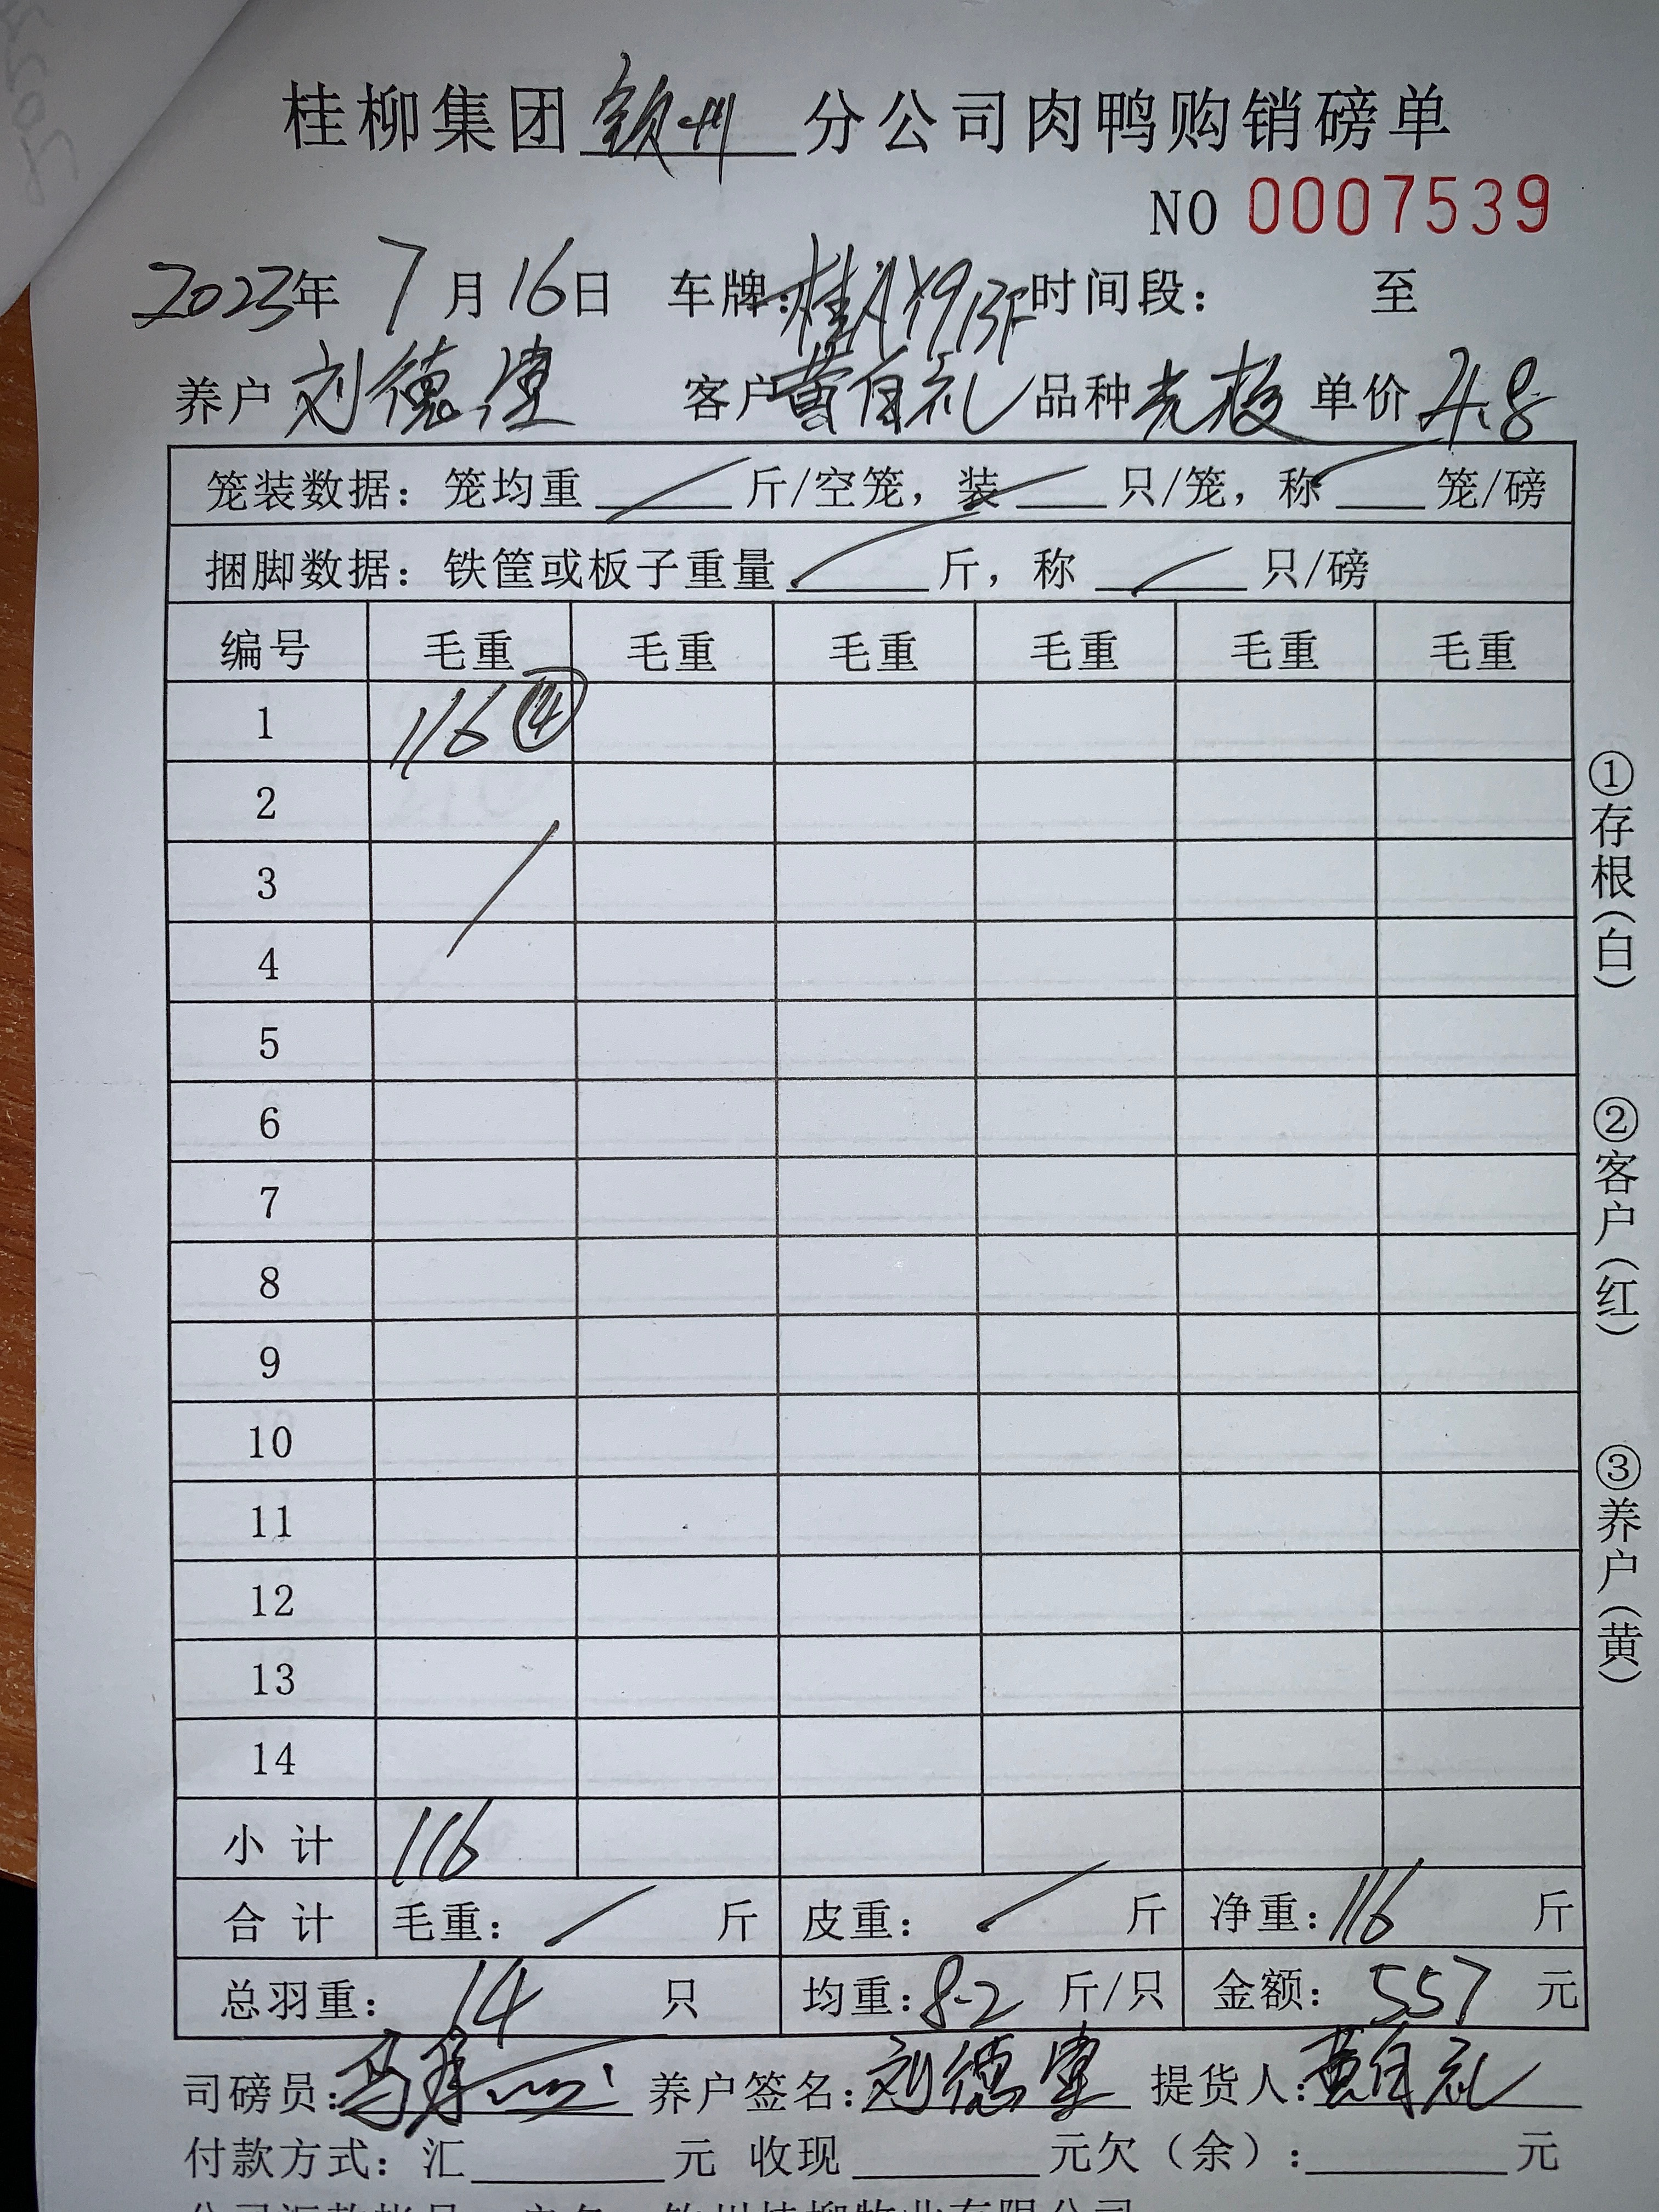 桂柳集团 钦州 分公司肉鸭购销磅单
NO 0007539
2023年 7月16日 车牌:桂AY913F 时间段: 至
养户 刘德 客户 黄自礼 品种 单价 4.8
笼装数据: 笼均重 斤/空笼, 装 只/笼, 称 笼/磅
捆脚数据: 铁筐或板子重量 斤, 称 只/磅
编号 毛重 毛重 毛重 毛重 毛重 毛重
1 116 ⑭
2
3
4
5
6
7
8
9
10
11
12
13
14
小计 116
合计 毛重: 斤 皮重: 斤 净重: 116 斤
总羽重: 14 只 均重: 8.2 斤/只 金额: 557 元
司磅员: 养户签名: 刘德 提货人: 黄自礼
付款方式: 汇 元 收现 元欠(余): 元
①存根(白)
②客户(红)
③养户(黄)